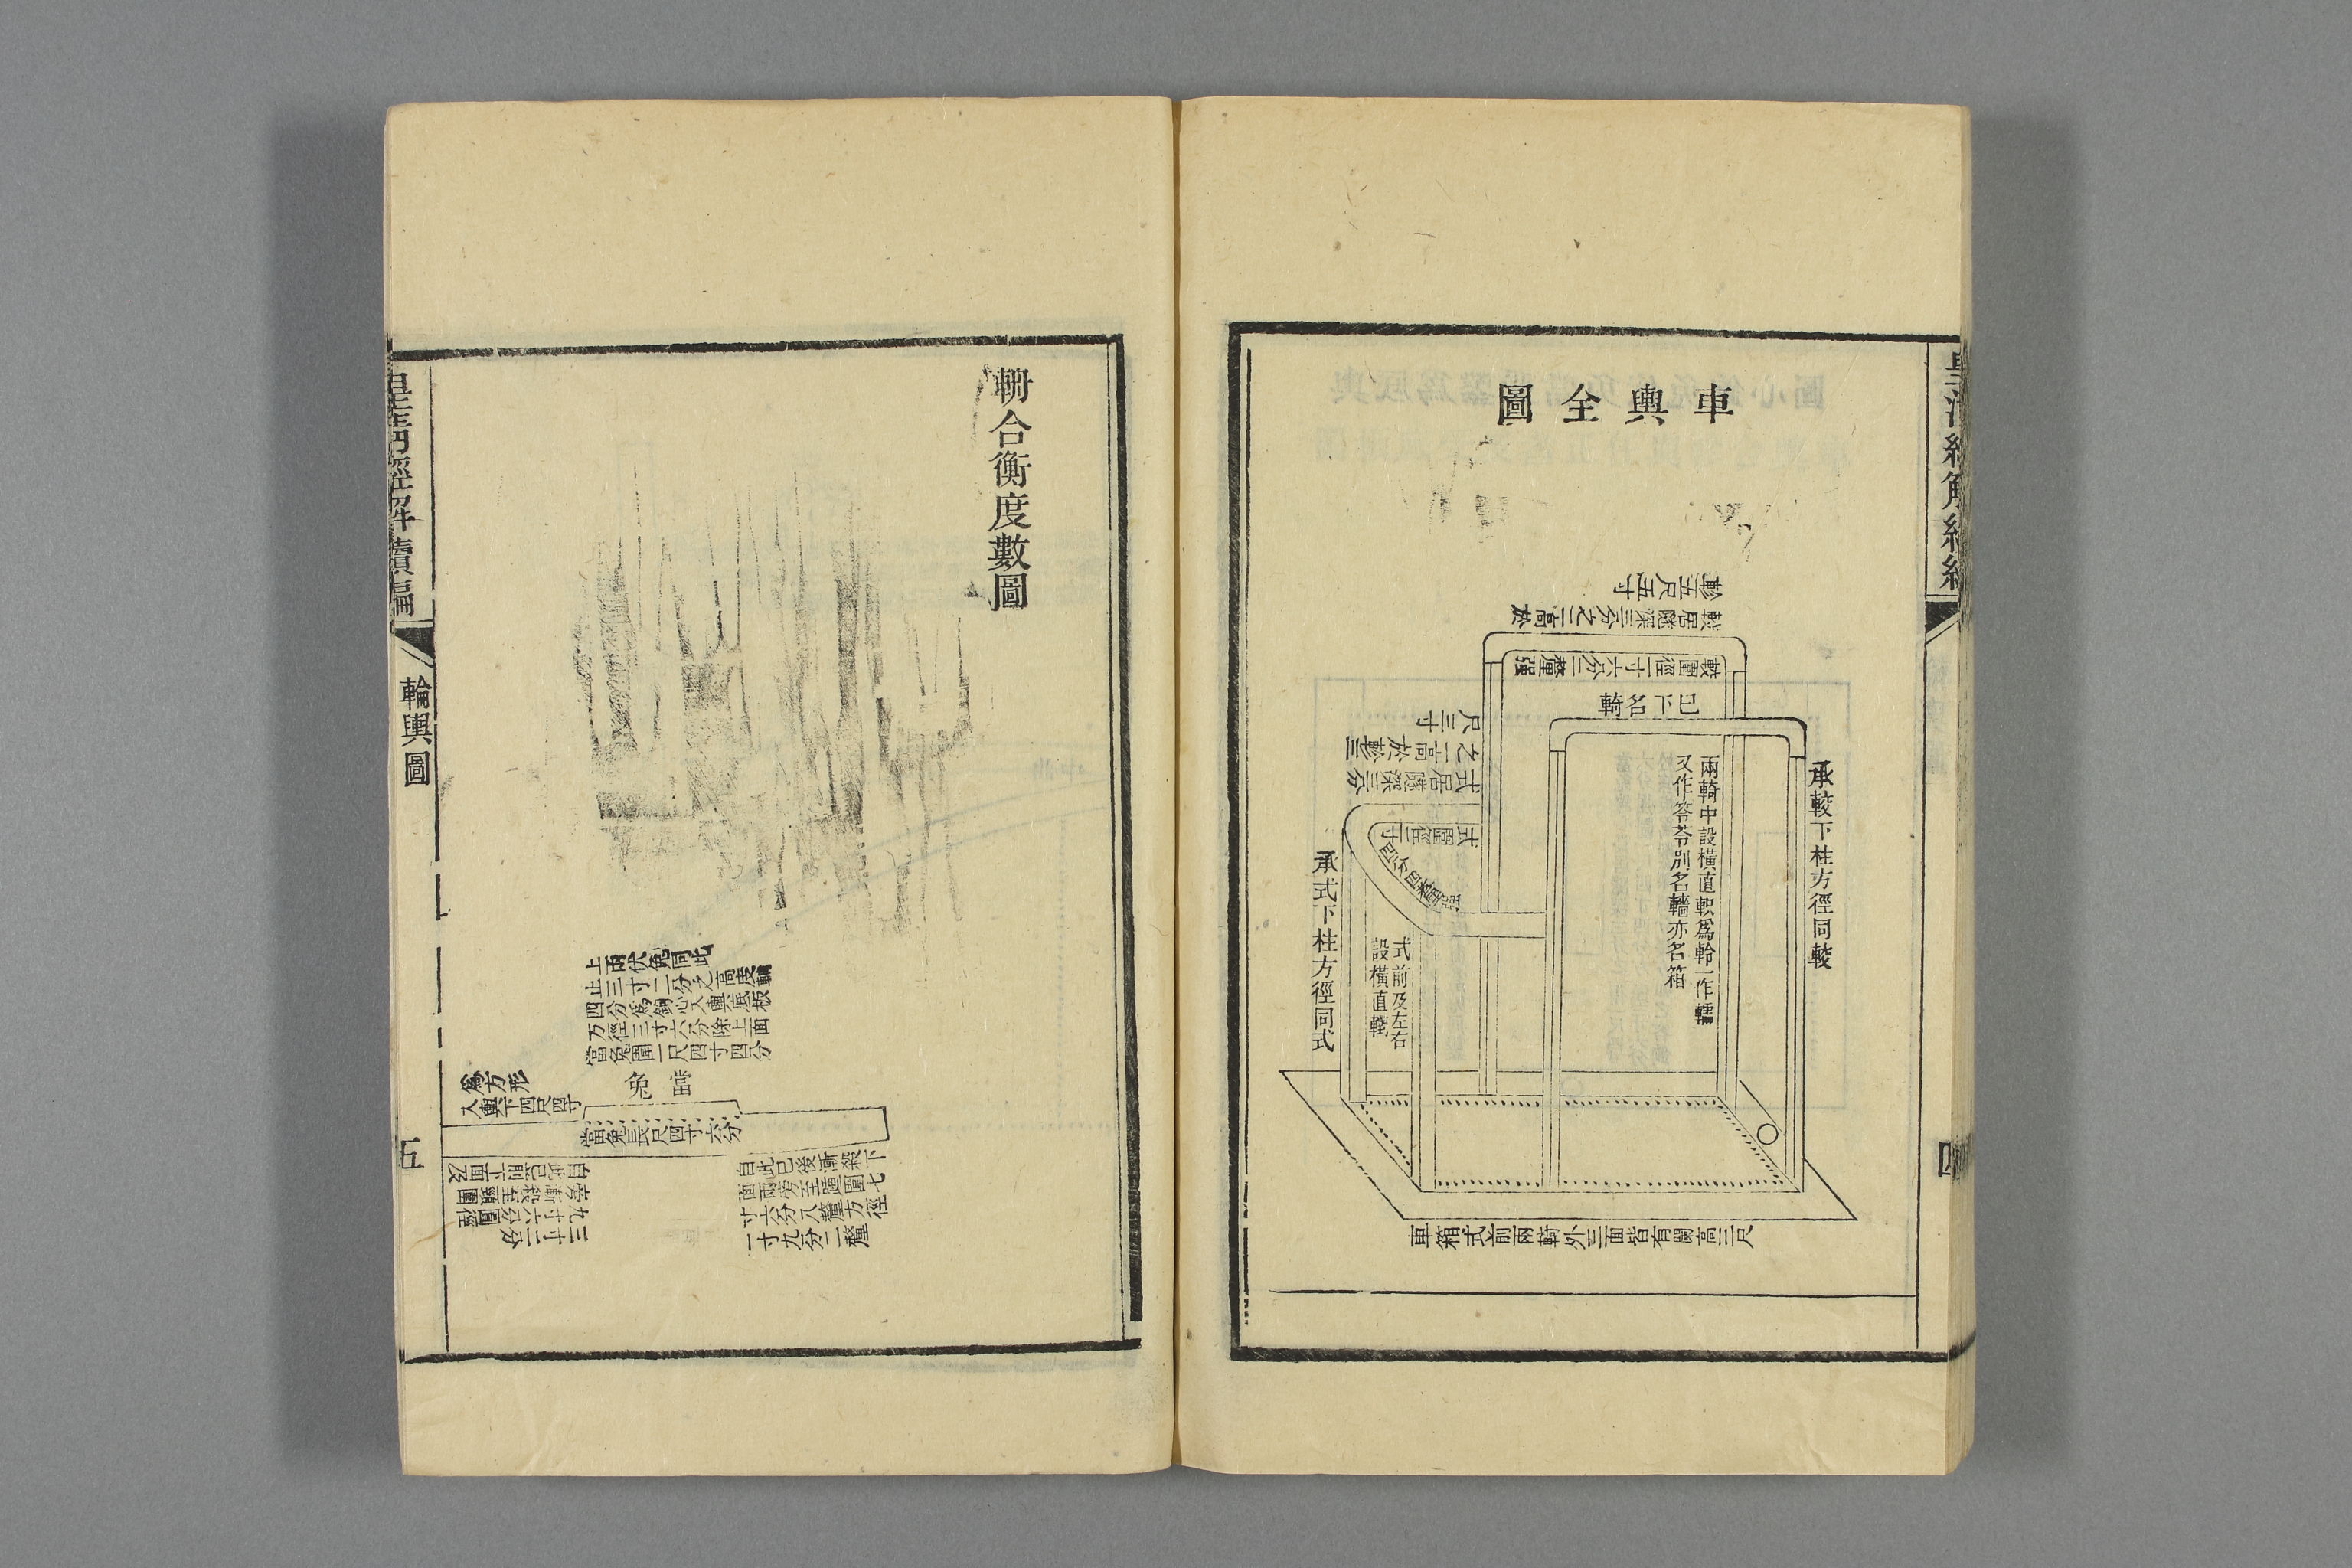 車輿全圖
軫五尺五寸
較居隧深三分之二高於
較圍徑一寸六分二釐强
已下名輢
式居隧深三分
之一高於軫三
尺三寸
式圍徑一寸
四分四釐强
承較下柱方徑同較
兩輢中設橫直軹爲軨一作轜
又作笭苓別名轖亦名箱
承式下柱方徑同式
式前及左右
設橫直軹
車箱式前兩輢外三面皆有闌高三尺
四
輈合衡度數圖
上兩伏兔同此
四止三寸二分之高度輈
方徑三寸六分除上面
當兔圍一尺四寸四分
當兔
爲方形
入輿下四尺四寸
當兔長尺四寸六分
自此已後漸殺下
面兩旁至踵圍七
寸六分八釐方徑
一寸九分二釐
自此已前下面及
旁漸殺至頸圍
九寸六分圍徑
三寸二分
皇清經解續編
輪輿圖
五